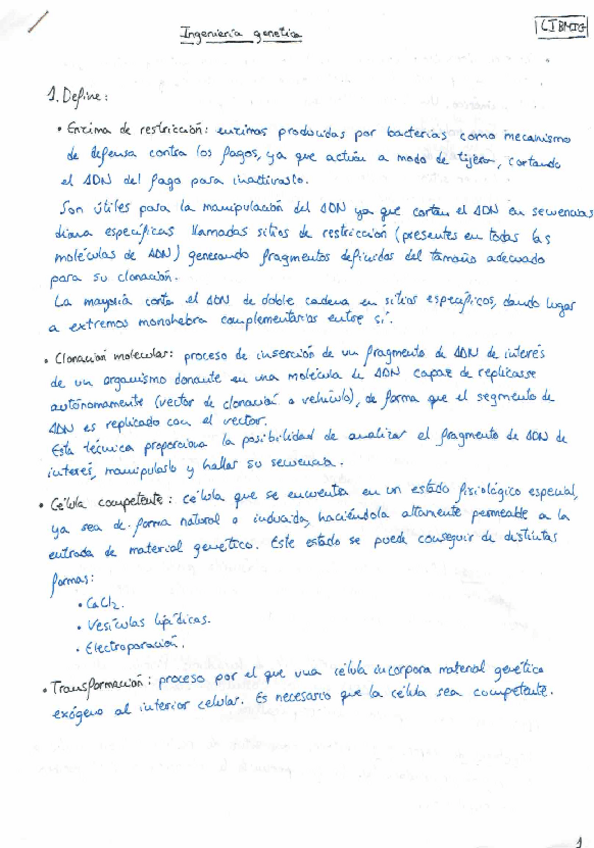 Ingeniería genetica
LIBMIG
1. Define:
• Enzima de restricción: enzimas producidas por bacterias como mecanismo
de defensa contra los fagos, ya que actúan a modo de tijera, cortando
el ADN del fago para inactivarlo.
Son útiles para la manipulación del ADN ya que cortan el ADN en secuencias
diana específicas llamadas sitios de restricción (presentes en todas las
moléculas de ADN) generando fragmentos definidos del tamaño adecuado
para su clonación.
La mayoría corta el ADN de doble cadena en sitios específicos, dando lugar
a extremos monohebra complementarios entre sí.
• Clonación molecular: proceso de inserción de un fragmento de ADN de interés
de un organismo donante en una molécula de ADN capaz de replicarse
autónomamente (vector de clonación o vehículo), de forma que el segmento de
ADN es replicado con el vector.
Esta técnica proporciona la posibilidad de analizar el fragmento de ADN de
interés, manipularlo y hallar su secuencia.
• Célula competente: célula que se encuentra en un estado fisiológico especial,
ya sea de forma natural o inducida, haciéndola altamente permeable a la
entrada de material genético. Este estado se puede conseguir de distintas
formas:
• CaCl2.
• Vesículas lipídicas.
• Electroporación.
• Transformación: proceso por el que una célula incorpora material genético
exógeno al interior celular. Es necesario que la célula sea competente.
1